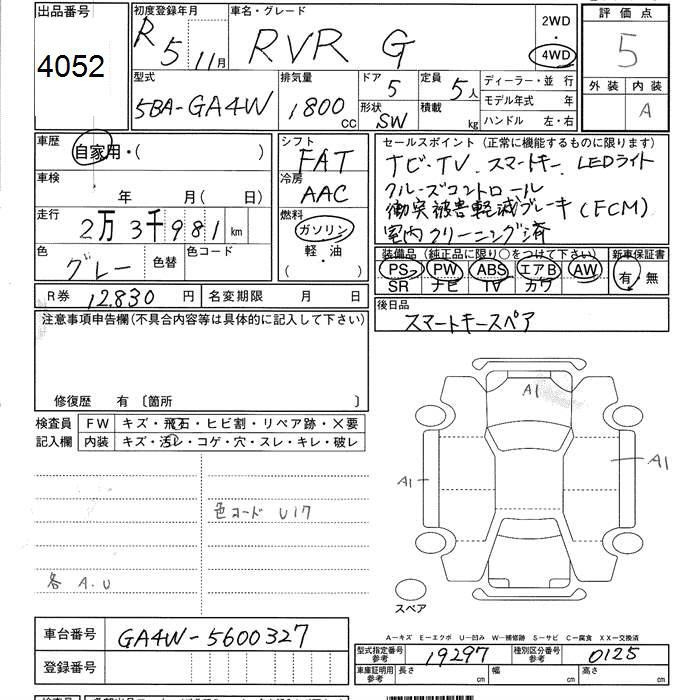 出品番号
4052
初度登録年月
R 5 11月
車名・グレード
RVR G
2WD
・
4WD
評価点
5
外装 内装
A
型式
5BA-GA4W
排気量
1800 CC
ドア 5
定員 5人
形状 SW
積載 kg
ディーラー・並行
モデル年式 年
ハンドル 左・右
車歴
自家用・( )
シフト
FAT
冷房
AAC
車検
年 月( 日)
走行
2万 3千 9 8 1 km
燃料
ガソリン
軽・油
( )
色
グレー
色替
色コード
セールスポイント (正常に機能するものに限ります)
ナビ・TV. スマートキー. LEDライト
クルーズコントロール
衝突被害軽減ブレーキ(FCM)
室内クリーニング済
装備品 (純正品に限り○をつけて下さい)
新車保証書
PS PW ABS エアB AW
SR ナビ TV カワ
有・無
R券 12,830 円
名変期限 月 日
後日品
スマートキースペア
注意事項申告欄(不具合内容等は具体的に記入して下さい)
修復歴 有 〔箇所 〕
検査員
記入欄
FW キズ・飛石・ヒビ割・リペア跡・×要
内装 キズ・汚れ・コゲ・穴・スレ・キレ・破レ
色コード U17
各 A.U
A1
A1
A1
スペア
A―キズ E―エクボ U―凹み W―補修跡 S―サビ C―腐食 XX―交換済
車台番号
GA4W-5600327
登録番号
型式指定番号
参考
19297
種別区分番号
参考
0125
車庫証明用
参考
長さ cm
幅 cm
高さ cm